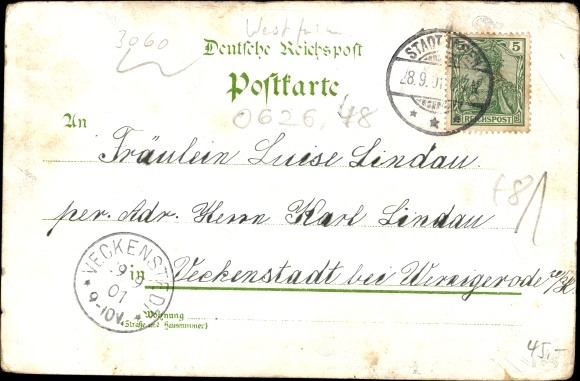 3060
Westfalen
Deutsche Reichspost
Postkarte
0626, 48
STADTHAGEN
28.9.01
5
REICHSPOST
An
Fräulein Luise Lindau
per. Adr. Herrn Karl Lindau
in Veckenstadt bei Wernigerode a/H.
VECKENSTEDT
9
01
9-10V.
Wohnung
(Straße und Hausnummer)
45,-